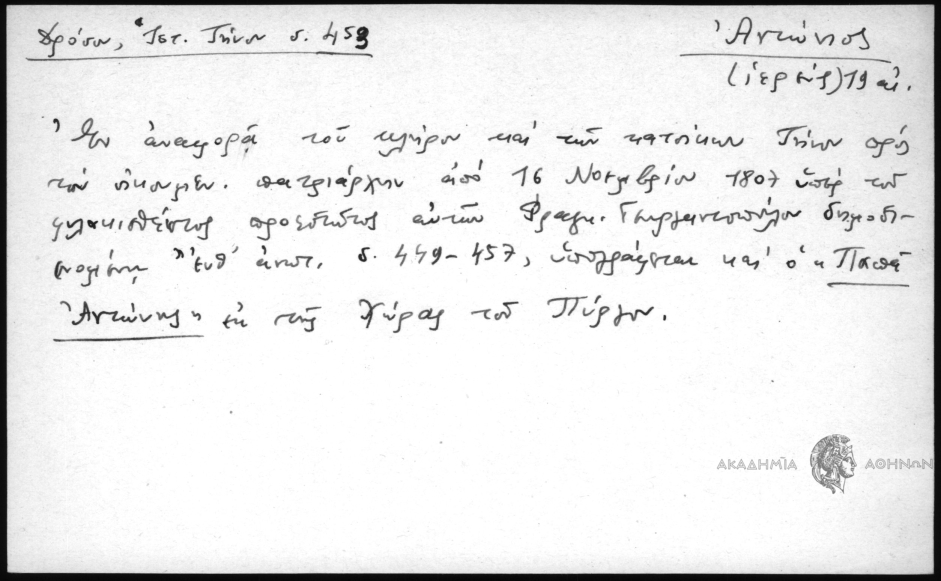 Δρόσου, Ἱστ. Τήνου σ. 453
Ἀντώνιος
(ἱερεύς) 19 αἰ.
Ἐν ἀναφορᾷ τοῦ κλήρου καὶ τῶν κατοίκων Τήνου πρός
τόν οἰκουμεν. πατριάρχην ἀπό 16 Νοεμβρίου 1807 ὑπέρ τοῦ
φυλακισθέντος προεστῶτος αὐτῶν Φραγκ. Γεωργαντοπούλου δημοσι-
ευομένῃ ἔνθ' ἀνωτ. σ. 449-457, ὑπογράφεται καί ὁ "Παπᾶ
Ἀντώνης" ἐκ τῆς Χώρας τοῦ Πύργου.
ΑΚΑΔΗΜΙΑ ΑΘΗΝΩΝ